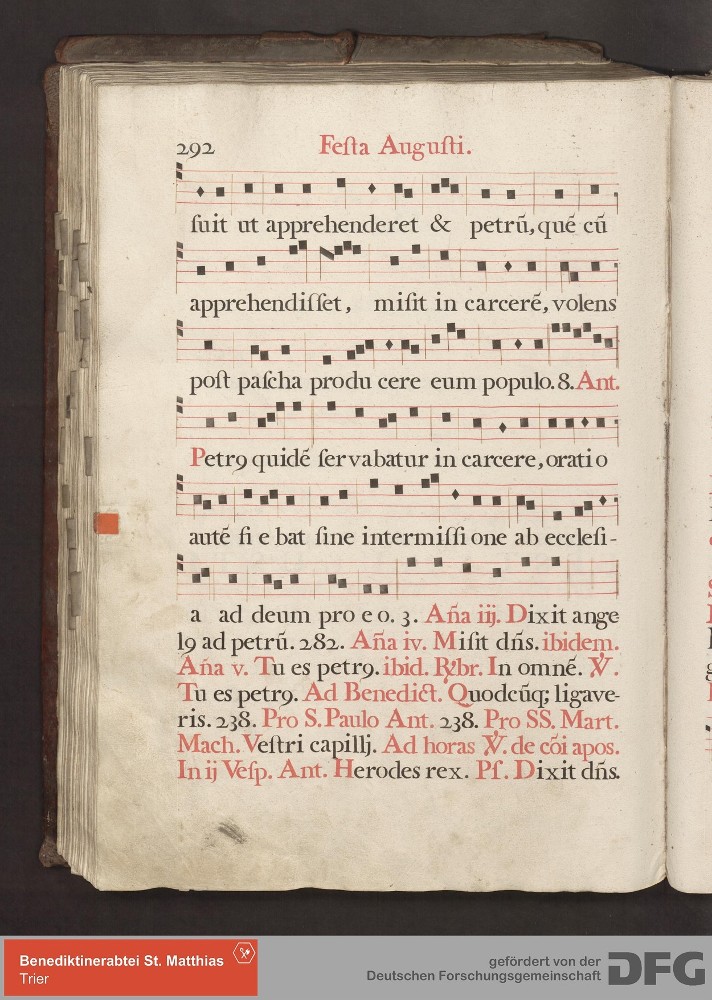 292 Feſta Auguſti.
ſuit ut apprehenderet & petrū, quē cū
apprehendiſſet, miſit in carcerē, volens
poſt paſcha produ cere eum populo. 8. Ant.
Petr9 quidē ſervabatur in carcere, orati o
autē fi e bat ſine intermiſſi one ab eccleſi-
a ad deum pro e o. 3. Aña iij. Dixit ange
l9 ad petrū. 282. Aña iv. Miſit dñs. ibidem.
Aña v. Tu es petr9. ibid. R̸br. In omnē. V̸.
Tu es petr9. Ad Benedict. Quodcūq; ligave-
ris. 238. Pro S. Paulo Ant. 238. Pro SS. Mart.
Mach. Veſtri capillj. Ad horas V̸. de cōi apos.
In ij Veſp. Ant. Herodes rex. Pſ. Dixit dñs.
Benediktinerabtei St. Matthias
Trier
gefördert von der
Deutschen Forschungsgemeinschaft DFG